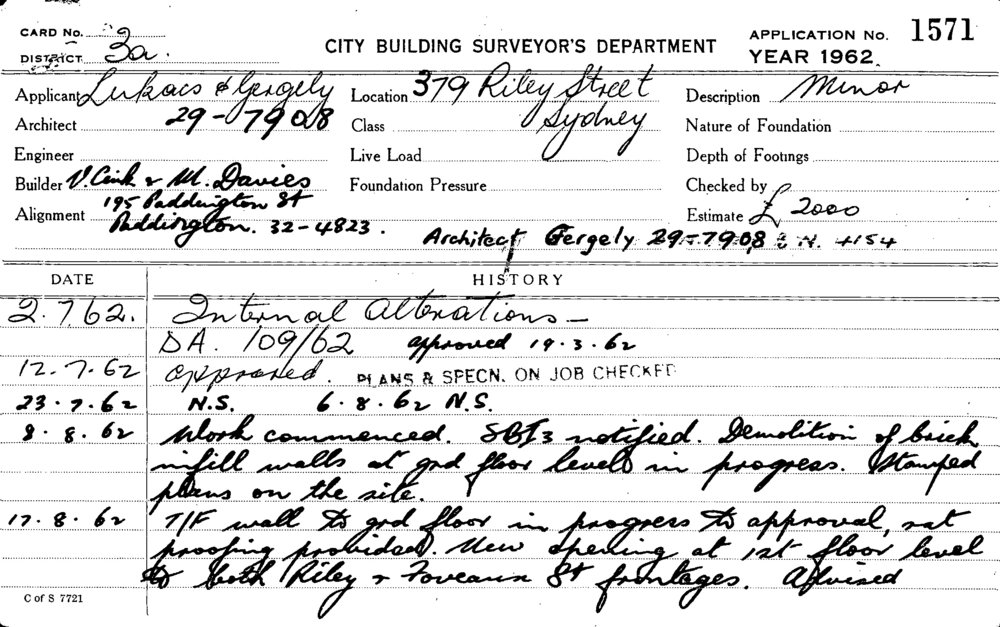 CARD No. 2
DISTRICT 3a.
CITY BUILDING SURVEYOR'S DEPARTMENT
APPLICATION No. 1571
YEAR 1962.
Applicant Lukacs & Gergely
Location 379 Riley Street
Description Minor
Architect 29-7908
Class Sydney
Nature of Foundation
Engineer
Live Load
Depth of Footings
Builder V. Cink & M. Davies
Foundation Pressure
Checked by
195 Paddington St
Alignment Paddington. 32-4823.
Estimate £ 2000
Architect Gergely 29-7908 N. 4154
DATE HISTORY
2.7.62. Internal Alterations -
DA. 109/62 approved 19.3.62
12.7.62 approved. PLANS & SPECN. ON JOB CHECKED
23.7.62 N.S. 6.8.62 N.S.
8.8.62 Work commenced. SBI3 notified. Demolition of brick
infill walls at grd floor level in progress. Stamped
plans on the site.
17.8.62 T/F wall to grd floor in progress to approval, rat
proofing provided. New opening at 1st floor level
to both Riley & Foveaux St frontages. Advised
C of S 7721